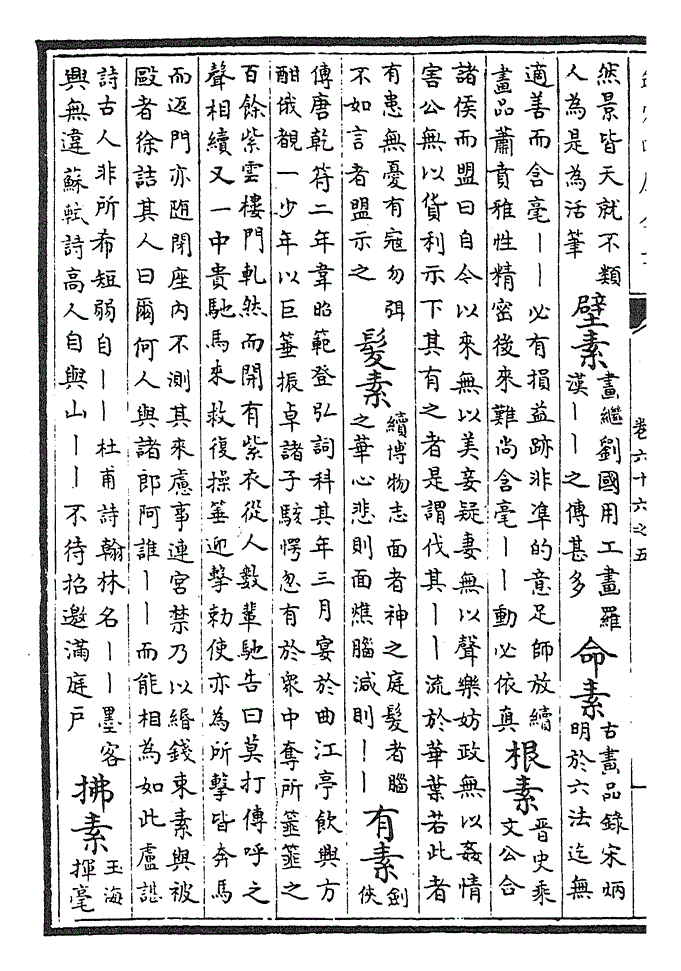 卷六十六之五
然景皆天就不類
人為是為活筆
壁素
畫繼劉國用工畫羅
漢丨丨之傳甚多
命素
古畫品錄宋炳
明於六法迄無
適善而含毫丨丨必有損益跡非凖的意足師放續
畫品蕭賁雅性精密後來難尚含毫丨丨動必依真
根素
晉史乘
文公合
諸侯而盟曰自今以來無以美妾疑妻無以聲樂妨政無以姦情
害公無以貨利示下其有之者是謂伐其丨丨流於華葉若此者
有患無憂有寇勿弭
不如言者盟示之
髮素
續博物志面者神之庭髮者腦
之華心悲則面燋腦減則丨丨
有素
劍
俠
傳唐乾符二年韋昭範登弘詞科其年三月宴於曲江亭飲興方
酣俄覩一少年以巨箠振卓諸子駭愕忽有於衆中奪所箠箠之
百餘紫雲樓門軋然而開有紫衣從人數輩馳告曰莫打傳呼之
聲相續又一中貴馳馬來救復操箠迎擊勅使亦為所擊皆奔馬
而返門亦随閉座內不測其來慮事連宮禁乃以緡錢束素與被
毆者徐詰其人曰爾何人與諸郎阿誰丨丨而能相為如此盧諶
詩古人非所希短弱自丨丨杜甫詩翰林名丨丨墨客
興無違蘇軾詩高人自與山丨丨不待招邀滿庭戶
拂素
玉海
揮毫